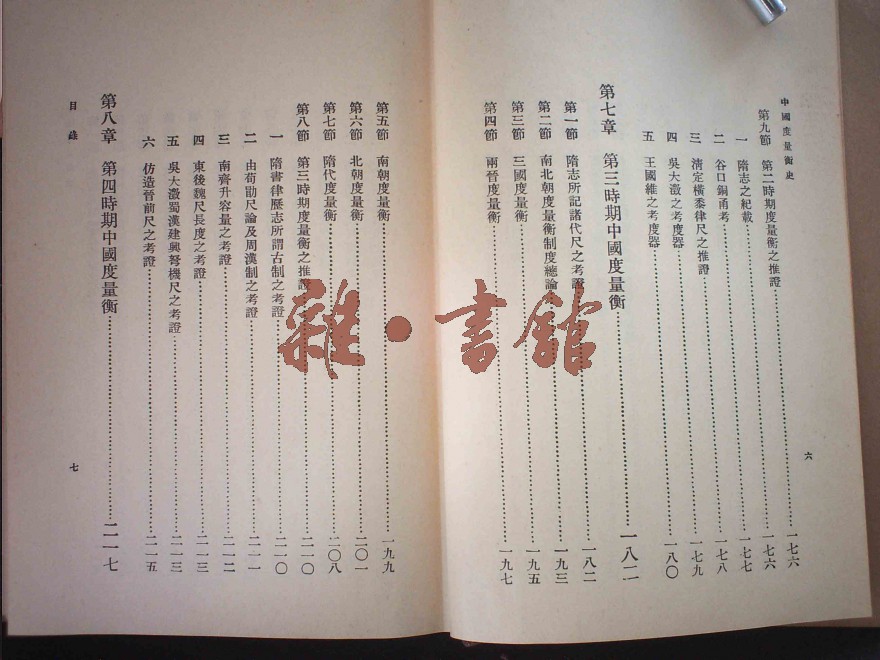 中國度量衡史
六
第九節 第二時期度量衡之推證……一七六
一 隋志之紀載……一七六
二 谷口銅甬考……一七七
三 清定橫黍律尺之推證……一七八
四 吳大澂之考度器……一七九
五 王國維之考度器……一八〇
第七章 第三時期中國度量衡……一八二
第一節 隋志所記諸代尺之考證……一八二
第二節 南北朝度量衡制度總論……一九三
第三節 三國度量衡……一九五
第四節 兩晉度量衡……一九七
第五節 南朝度量衡……一九九
第六節 北朝度量衡……二〇一
第七節 隋代度量衡……二〇八
第八節 第三時期度量衡之推證……二一〇
一 隋書律歷志所謂古制之考證……二一〇
二 由荀勖尺論及周漢制之考證……二一一
三 南齊升容量之考證……二一二
四 東後魏尺長度之考證……二一三
五 吳大澂蜀漢建興弩機尺之考證……二一三
六 仿造晉前尺之考證……二一五
第八章 第四時期中國度量衡……二一七
目錄
七
雜·書館